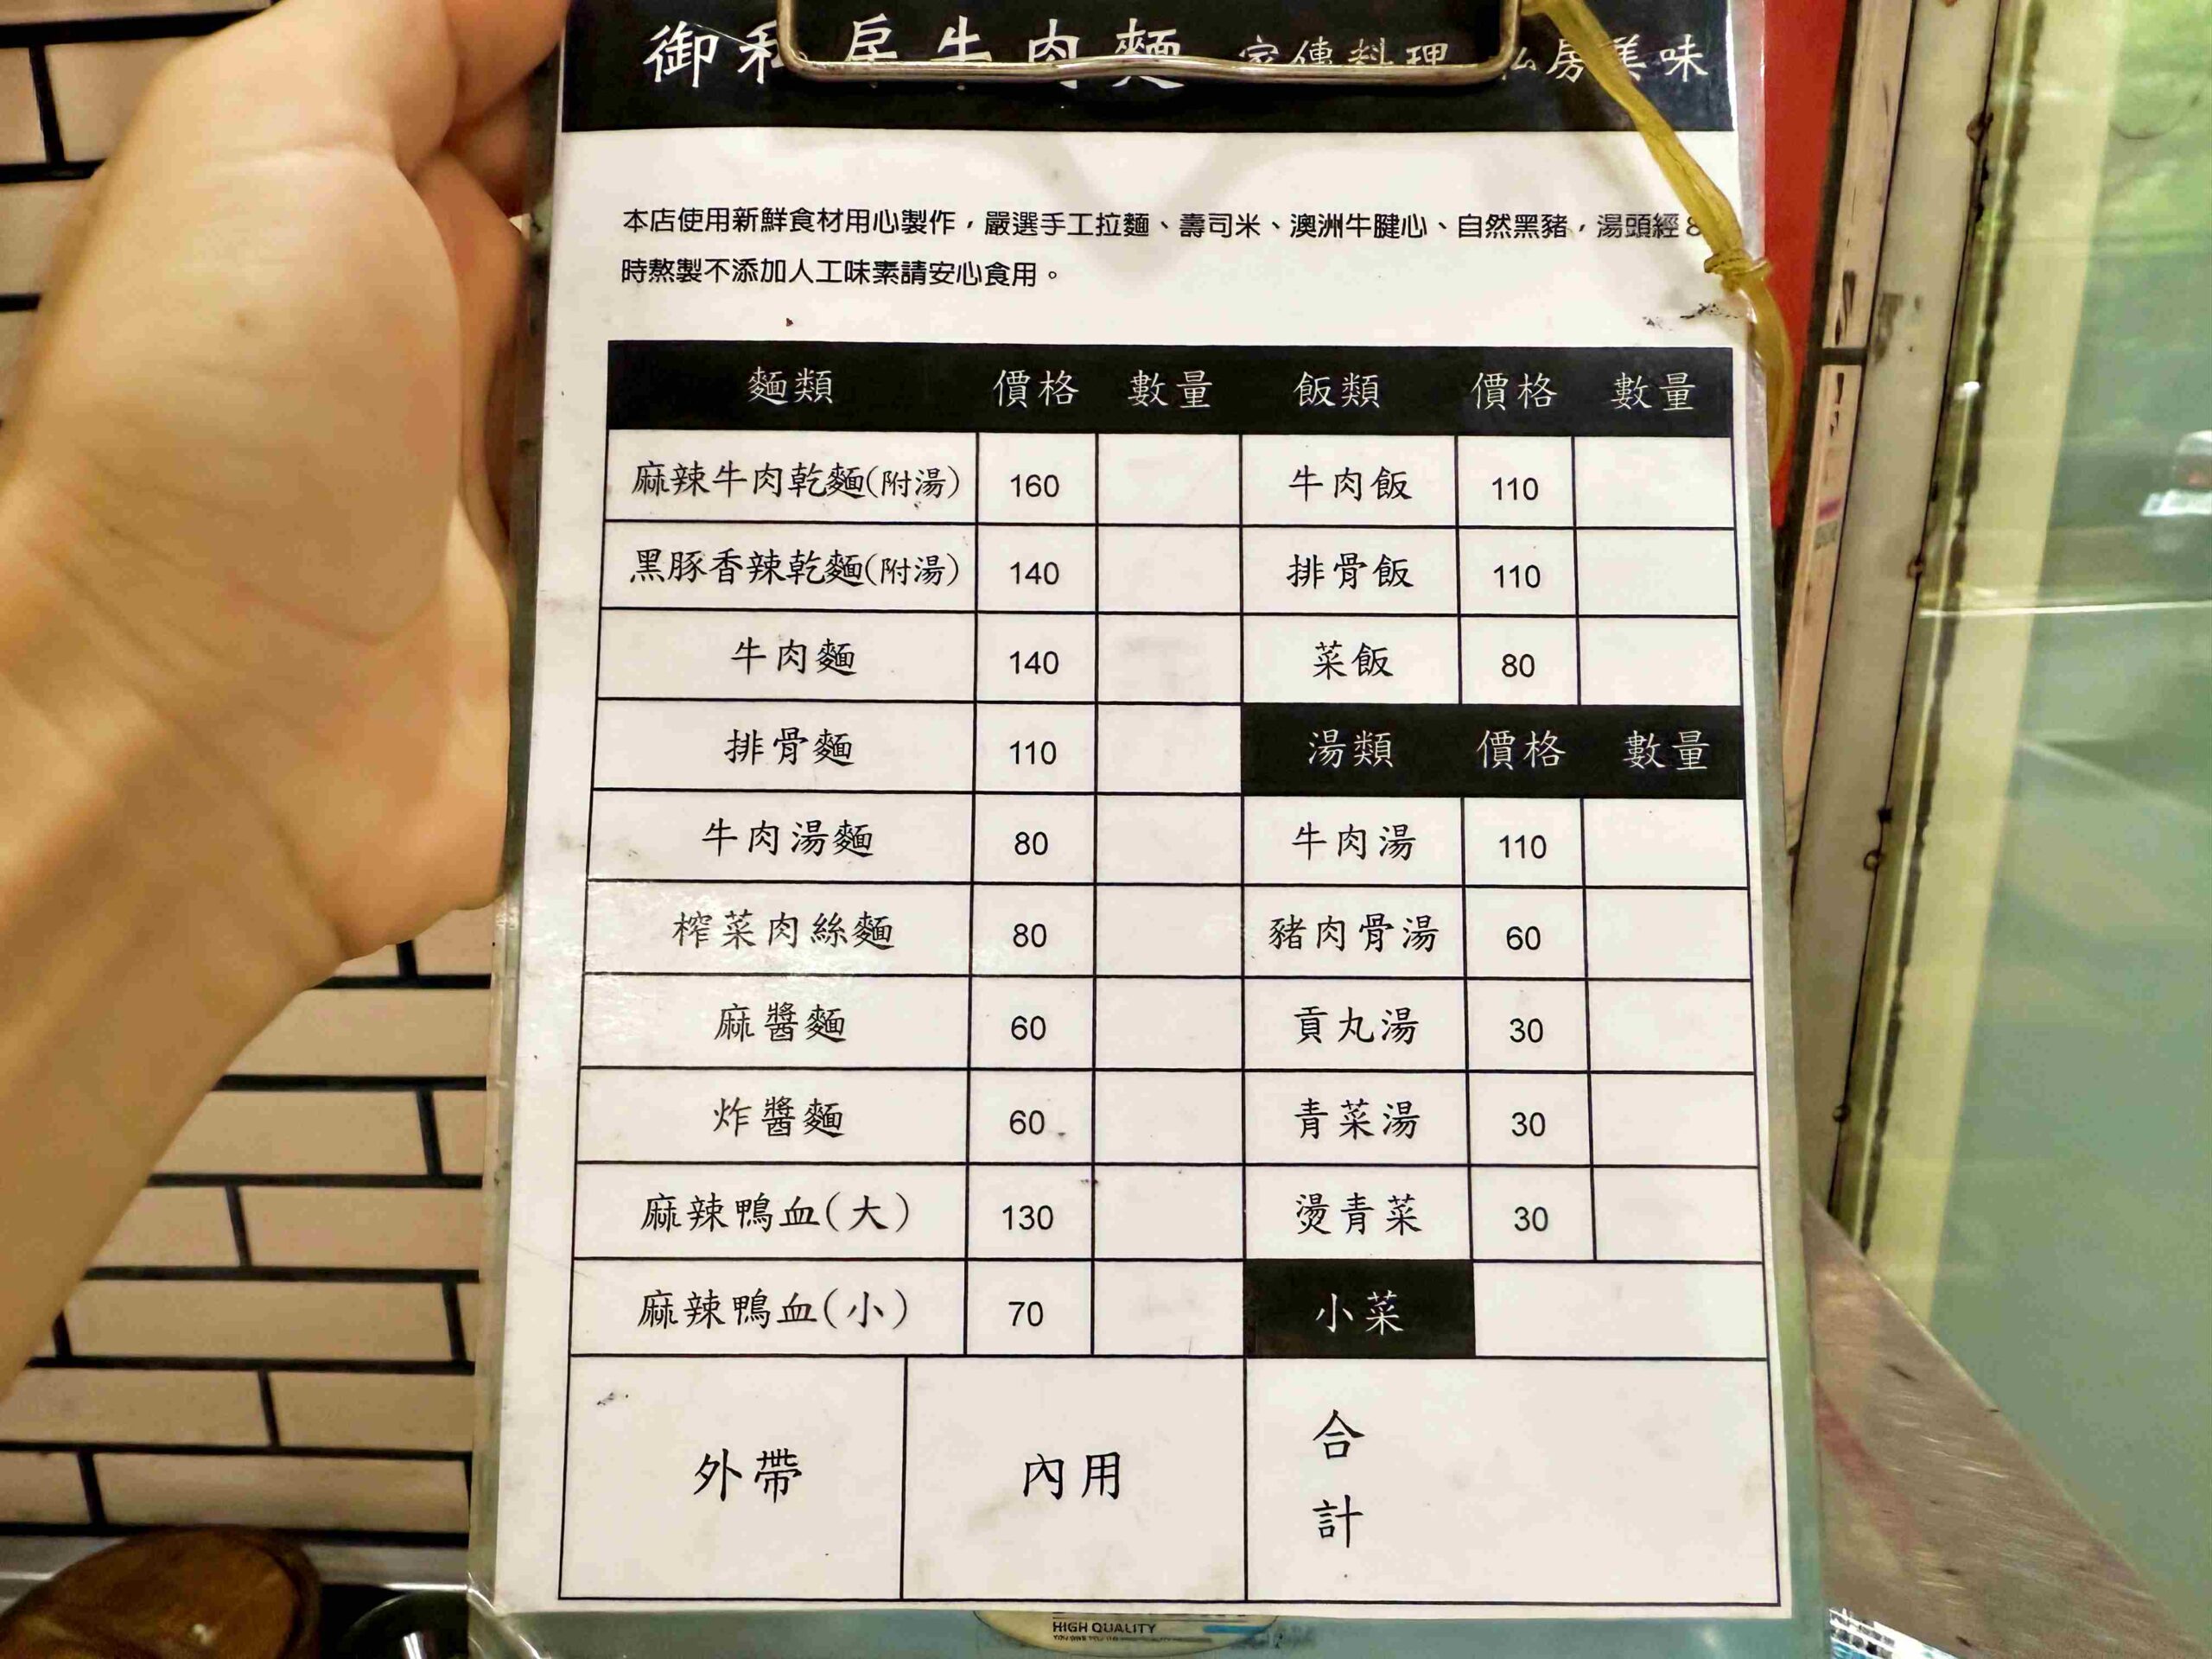 御私房牛肉麵 家傳料理 私房美味
本店使用新鮮食材用心製作，嚴選手工拉麵、壽司米、澳洲牛腱心、自然黑豬，湯頭經8
時熬製不添加人工味素請安心食用。
麵類 價格 數量 飯類 價格 數量
麻辣牛肉乾麵(附湯) 160 牛肉飯 110
黑豚香辣乾麵(附湯) 140 排骨飯 110
牛肉麵 140 菜飯 80
排骨麵 110 湯類 價格 數量
牛肉湯麵 80 牛肉湯 110
榨菜肉絲麵 80 豬肉骨湯 60
麻醬麵 60 貢丸湯 30
炸醬麵 60 青菜湯 30
麻辣鴨血(大) 130 燙青菜 30
麻辣鴨血(小) 70 小菜
外帶 內用 合計
HIGH QUALITY